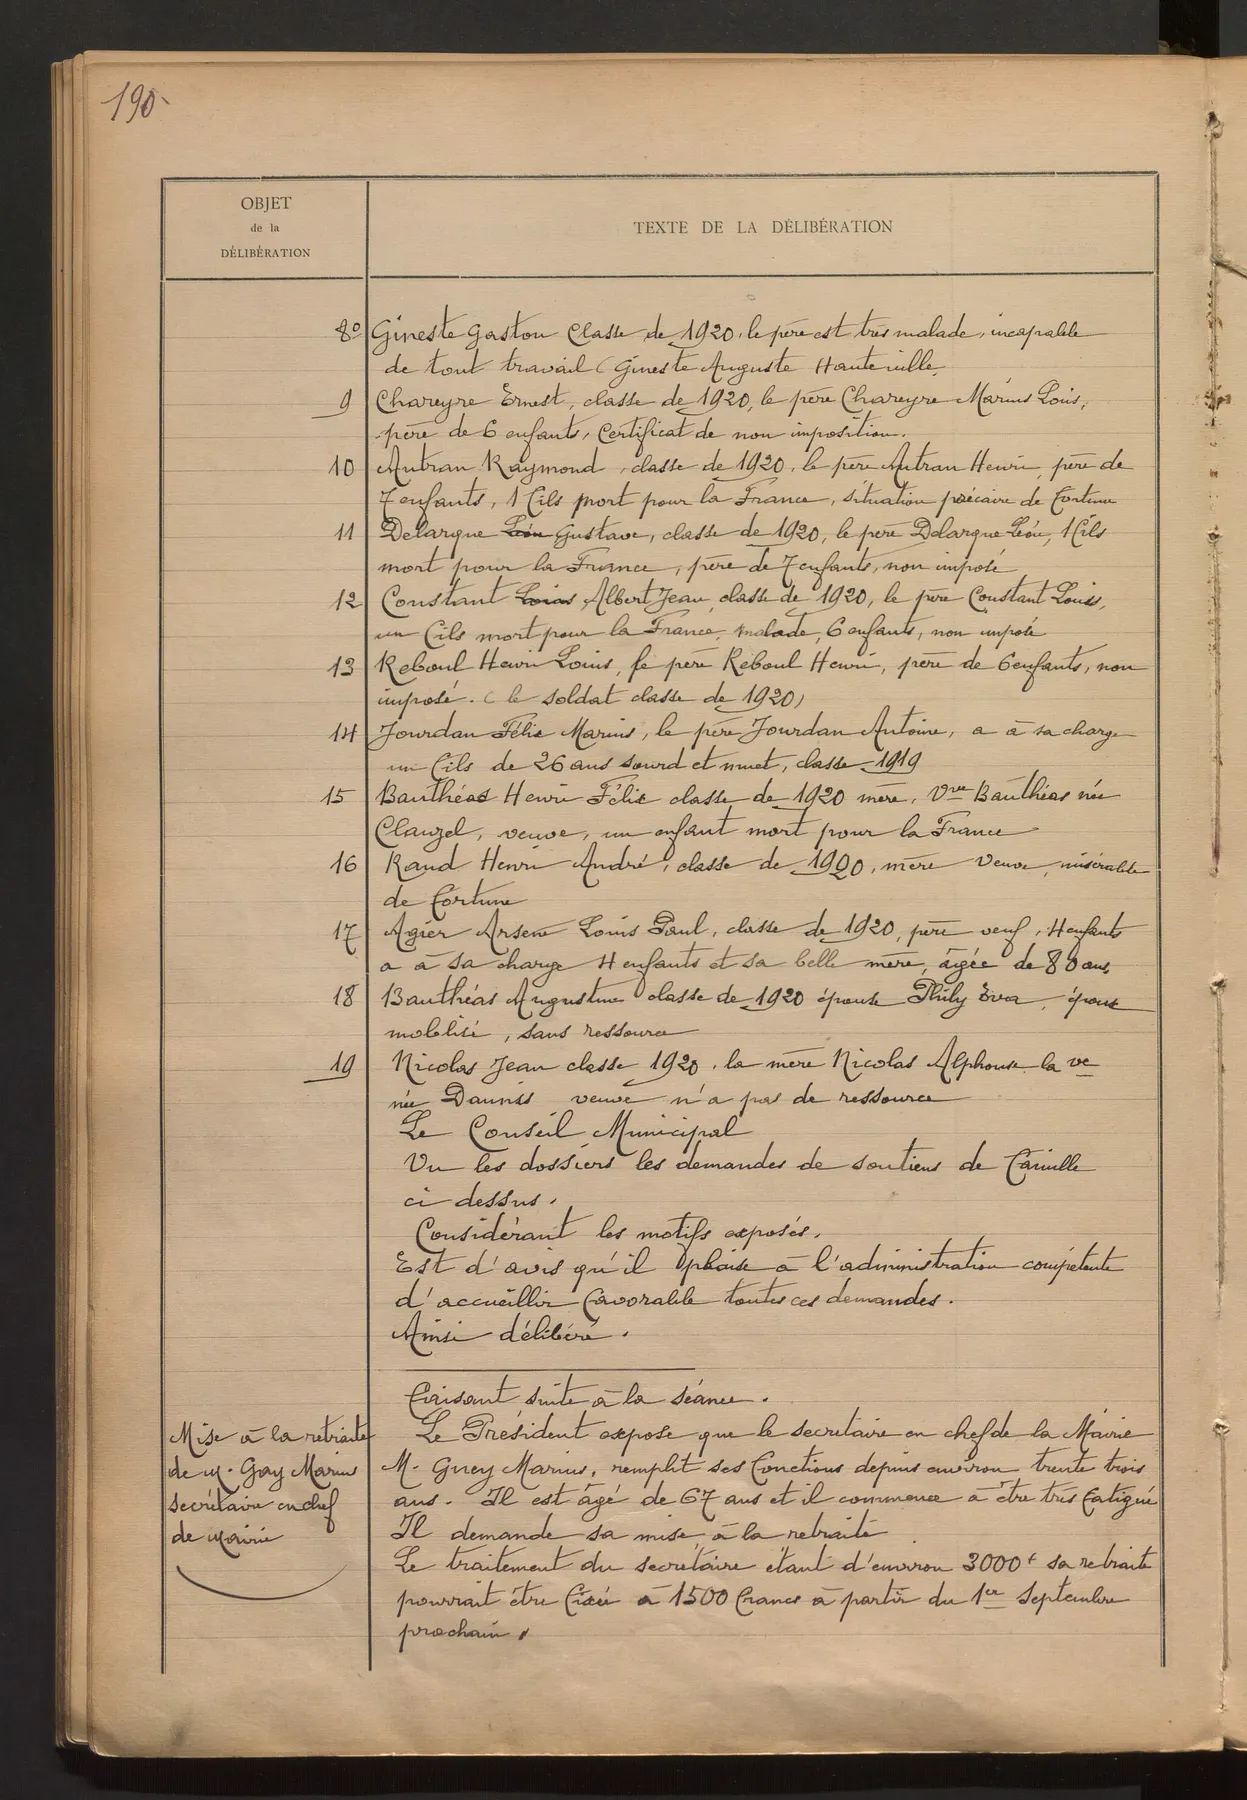 190
OBJET
de la
DÉLIBÉRATION
TEXTE DE LA DÉLIBÉRATION
8° Gineste Gaston Classe de 1920, le père est très malade, incapable
de tout travail (Gineste Auguste Hauteville
9 Chareyre Ernest, classe de 1920, le père Chareyre Marius Louis,
père de 6 enfants, Certificat de non imposition.
10 Autran Raymond, classe de 1920, le père Autran Henri, père de
7 enfants, 1 fils mort pour la France, situation précaire de fortune
11 Delarque Léon Gustave, classe de 1920, le père Delarque Léon, 1 fils
mort pour la France, père de 7 enfants, non imposé
12 Constant Louis Albert Jean, classe de 1920, le père Constant Louis,
un fils mort pour la France, malade, 6 enfants, non imposé
13 Reboul Henri Louis, le père Reboul Henri, père de 6 enfants, non
imposé. (le soldat classe de 1920)
14 Jourdan Félix Marius, le père Jourdan Antoine, a à sa charge
un fils de 26 ans sourd et muet, classe 1919
15 Bauthéas Henri Félix classe de 1920 mère, Vve Bauthéas née
Clauzel, veuve, un enfant mort pour la France
16 Raud Henri André, classe de 1920, mère Veuve, misérable
de fortune
17 Agier Arsene Louis Paul, classe de 1920, père veuf, 4 enfants
a à sa charge 4 enfants et sa belle mère, âgée de 80 ans
18 Bauthéas Augustine classe de 1920 épouse Phily Eva, époux
mobilisé, sans ressource
19 Nicolas Jean classe 1920, la mère Nicolas Alphonse la ve
née Dauniss veuve n'a pas de ressource
Le Conseil Municipal
Vu les dossiers les demandes de soutiens de famille
ci dessus.
Considérant les motifs exposés.
Est d'avis qu'il plaise à l'administration compétente
d'accueillir favorable toutes ces demandes.
Ainsi délibéré.
Faisant suite à la séance.
Mise à la retraite
de M. Gay Marius
secrétaire en chef
de Mairie
Le Président expose que le secretaire en chef de la Mairie
M. Guey Marius, remplit ses fonctions depuis environ trente trois
ans. Il est âgé de 67 ans et il commence à être très fatigué
Il demande sa mise à la retraite
Le traitement du secrétaire étant d'environ 3000 f sa retraite
pourrait être fixée à 1500 francs à partir du 1er Septembre
prochain.